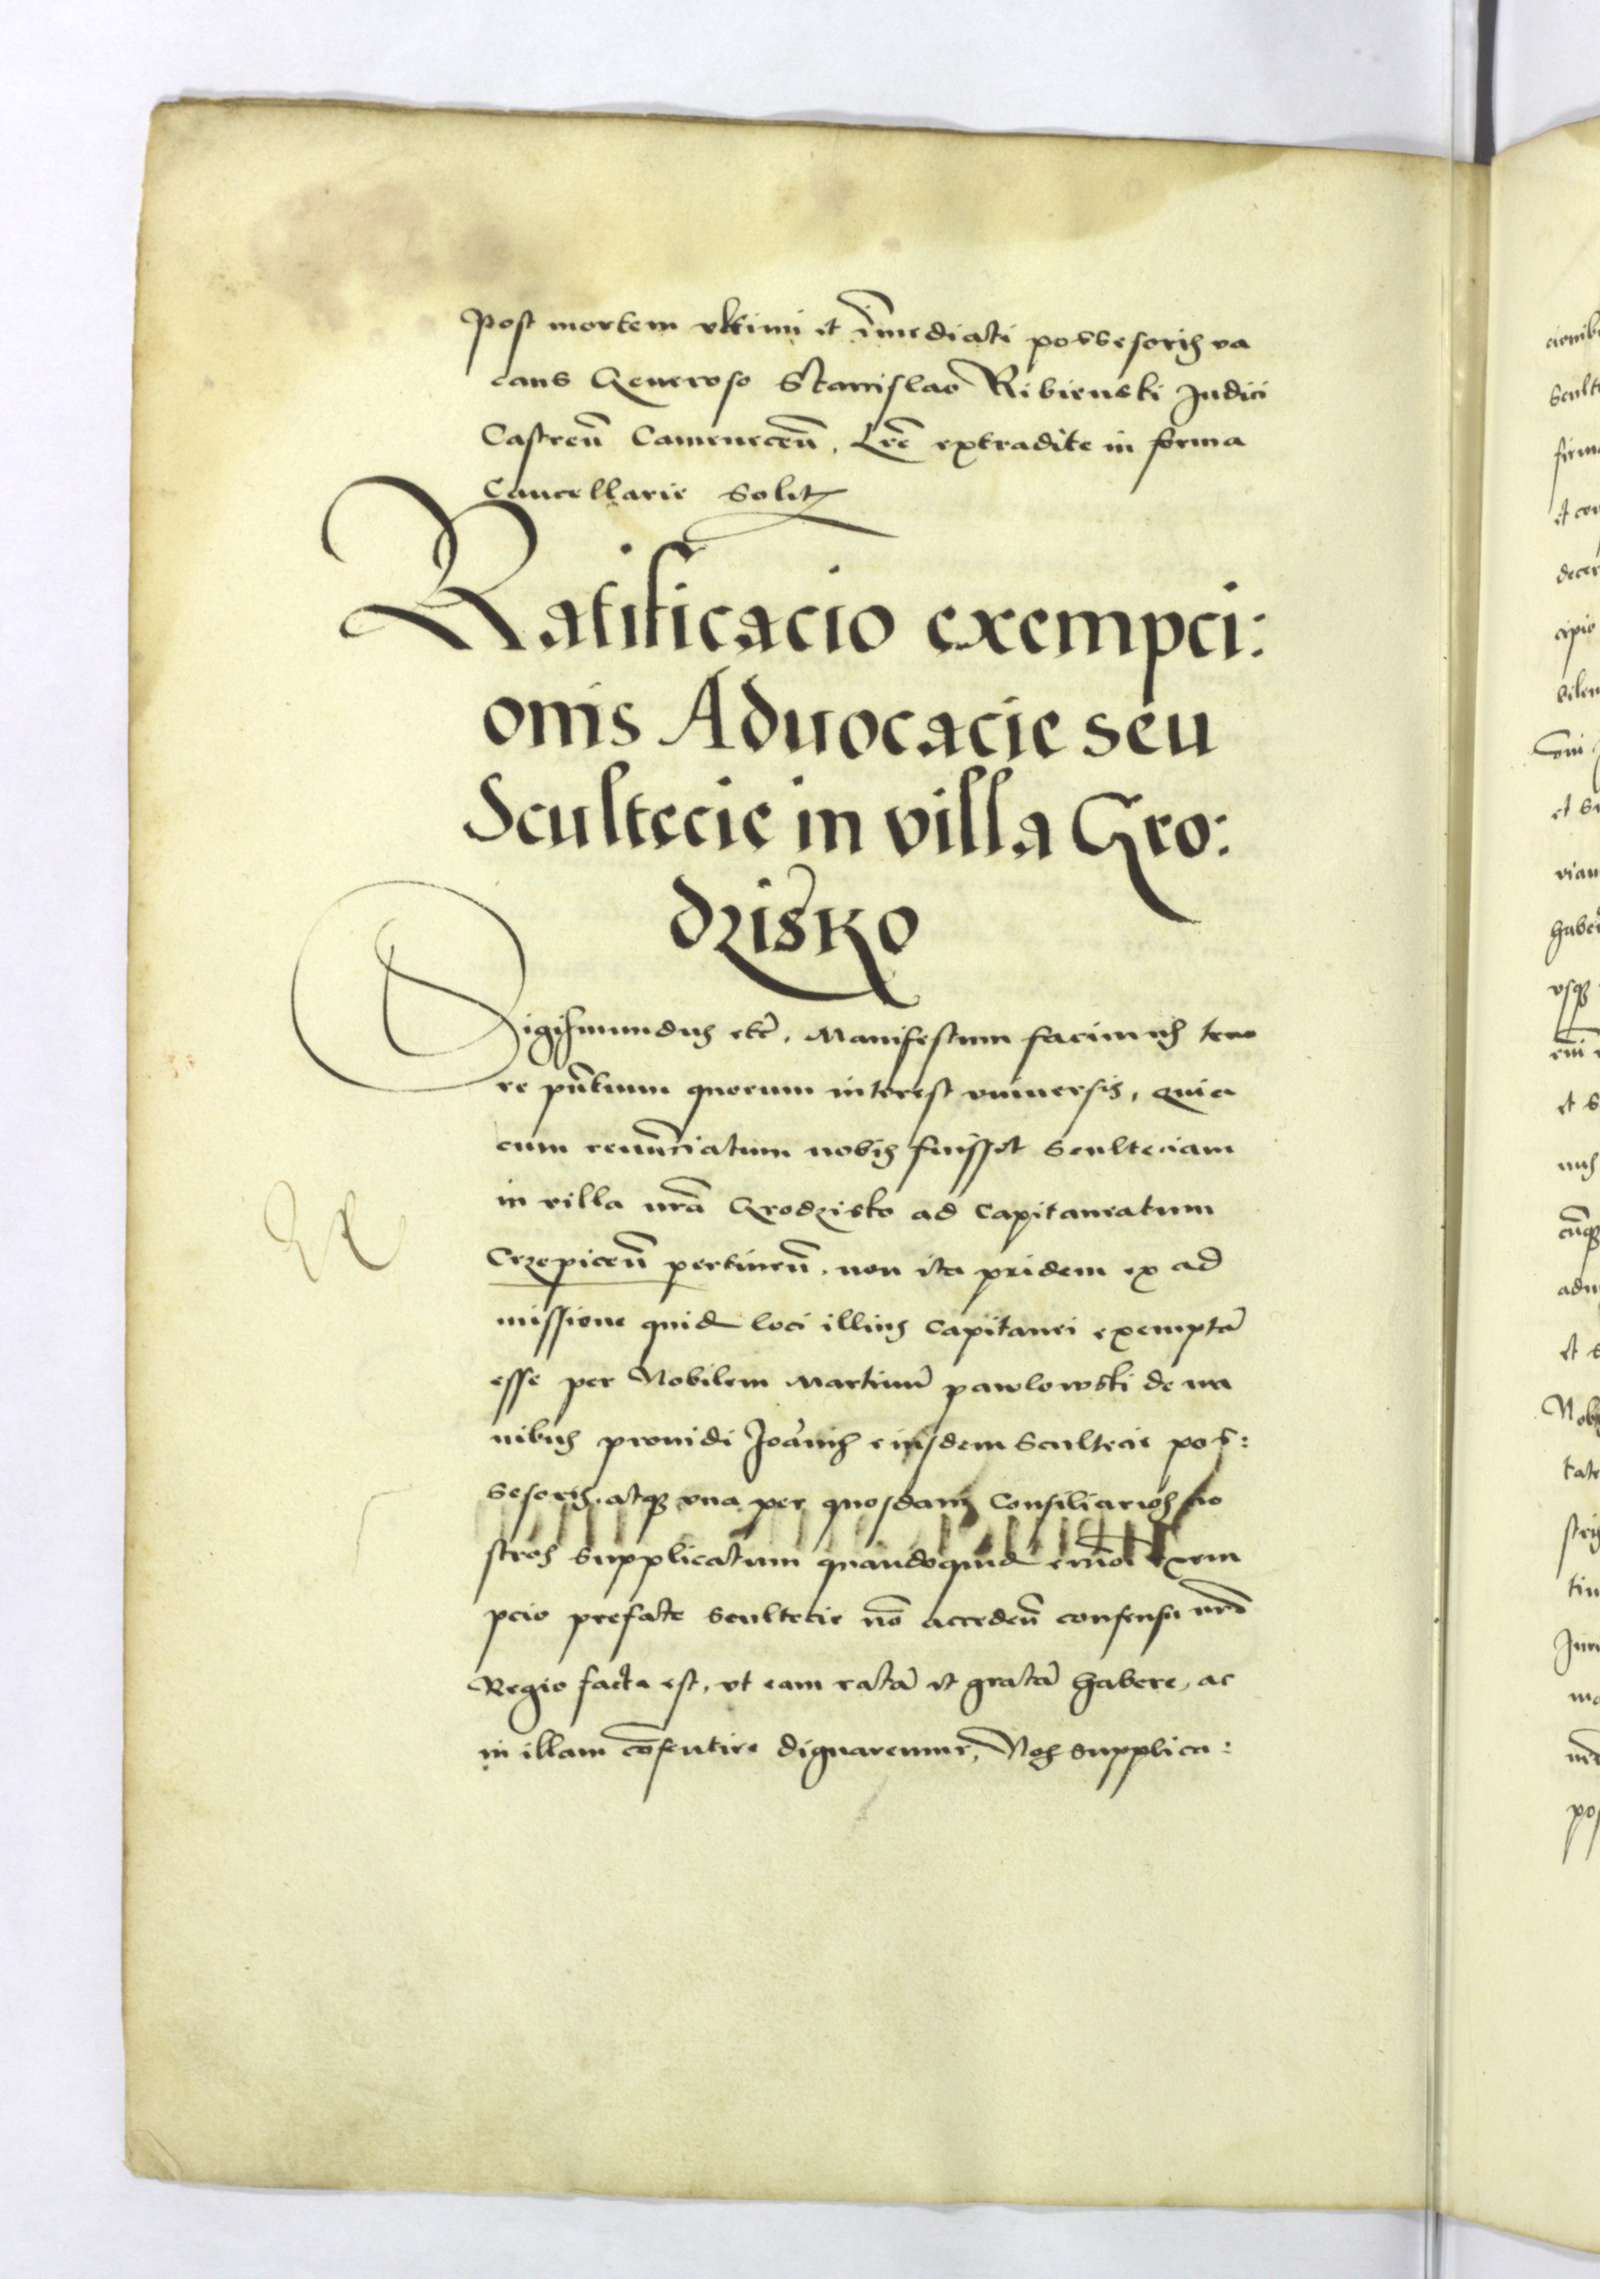 Post mortem vltimi et im̄ediati possesoris va
cans Generoso Stanislao Ribienski Judici
Castreñ Cameneceñ. Lr̄e extradite in forma
Cancellarie solit
Ratificacio exempci:
onis Aduocacie seu
Scultecie in villa Gro:
dzisko
Sigismundus etc̄. Manifestum facimus teno
re pn̄tium quorum interest vniuersis, quia
cum renun̄ciatum nobis fuisset Sculteciam
in villa nr̄a Grodzisko ad Capitaneatum
Crzepiceñ pertineñ. non ita pridem ex ad
missione quid loci illius Capitanei exemptā
esse per Nobilem Martinū pawlowski de ma
nibus prouidi Joānis eiusdem Scultecie pos:
sesoris. atq3 vna per quosdam Consiliarios no
stros supplicatum quandoquid em̄oi exem
pcio prefate Scultecie nō accedeñ consensu nr̄o
Regio facta est, vt eam ratā et gratā habere, ac
in illam cōsentire dignaremur, Nos supplica: